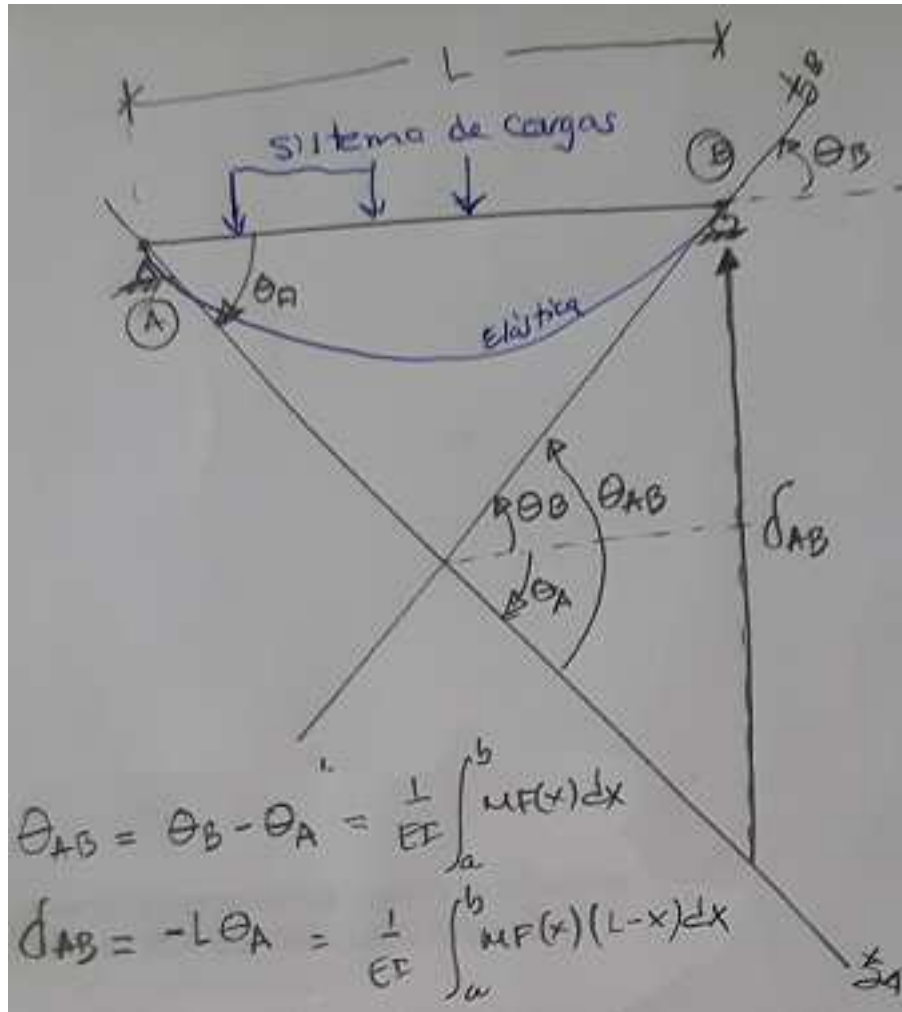 L
sistema de cargas
A
B
θB
θA
Elástica
θB
θAB
θA
δAB
θAB = θB - θA = 1/EI ∫ab MF(x)dx
δAB = -LθA = 1/EI ∫ab MF(x)(L-x)dx